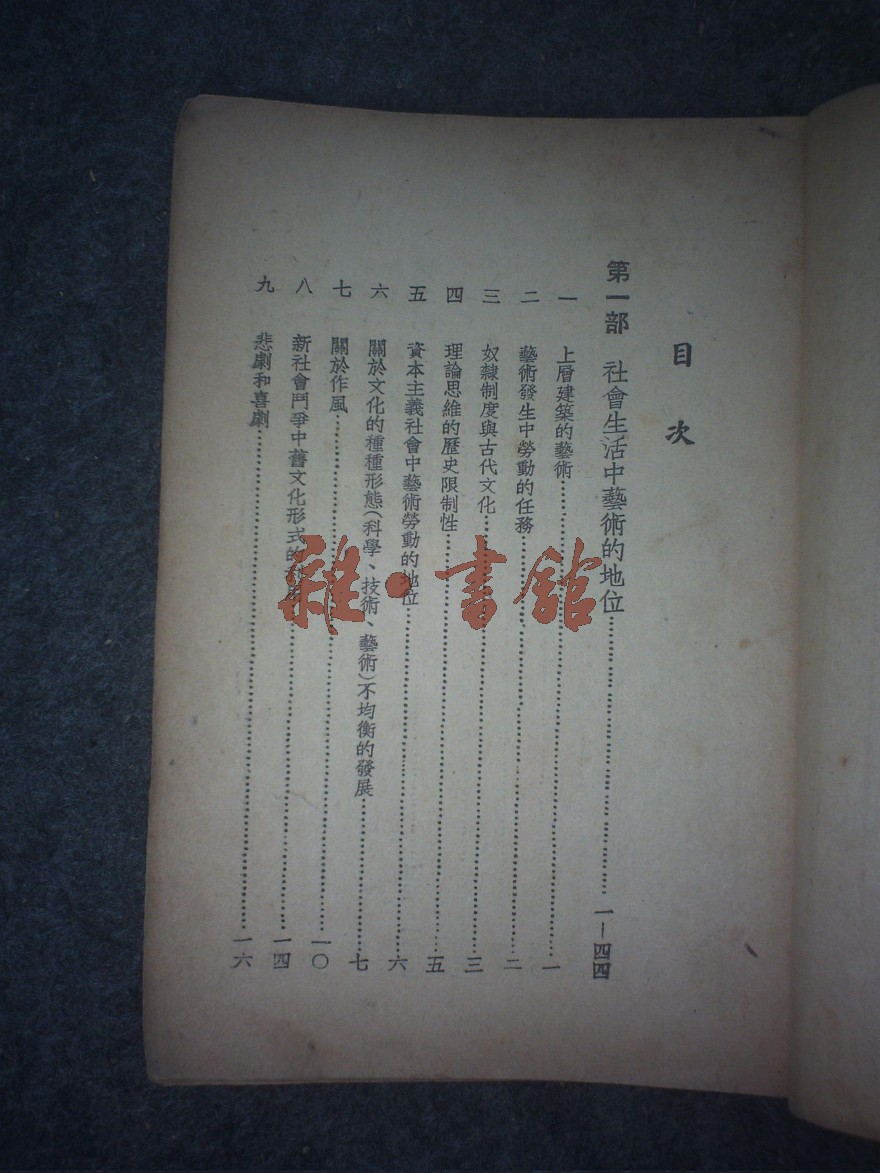 目次
第一部 社會生活中藝術的地位 一—四四
一 上層建築的藝術 一
二 藝術發生中勞動的任務 二
三 奴隸制度與古代文化 三
四 理論思維的歷史限制性 五
五 資本主義社會中藝術勞動的地位 六
六 關於文化的種種形態(科學、技術、藝術)不均衡的發展 七
七 關於作風 一〇
八 新社會鬥爭中舊文化形式的 一四
九 悲劇和喜劇 一六
雜·書館